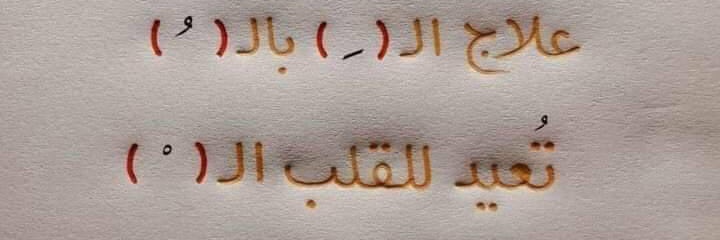 علاج الـ ( ـِ ) بالـ ( ـُ )
تُعيد للقلب الـ ( ـْ )